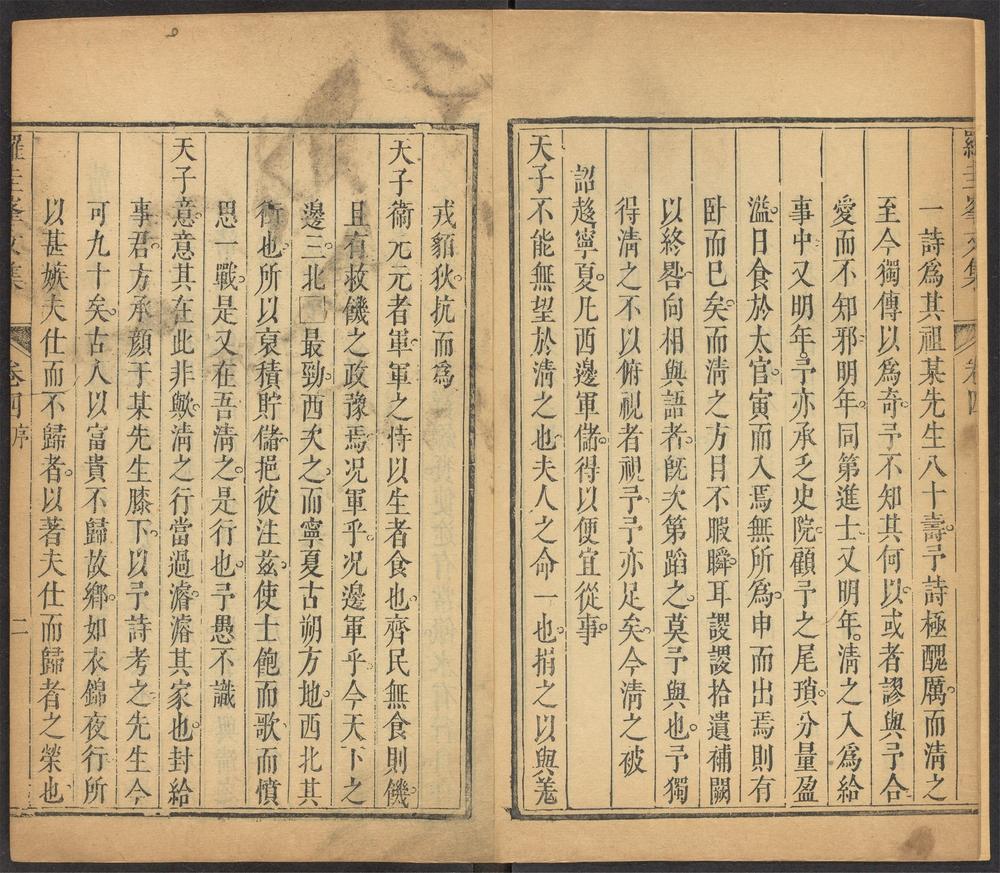 羅圭峯文集
卷四
一詩爲其祖某先生八十壽予詩極醜厲而淸之
至今獨傳以爲奇予不知其何以或者謬與予合
愛而不知邪明年同第進士又明年淸之入爲給
事中又明年予亦承乏史院顧予之尾瑣分量盈
溢日食於太官寅而入焉無所爲申而出焉則有
臥而已矣而淸之方目不暇瞬耳謖謖拾遺補闕
以終晷向相與語者旣次第蹈之莫予與也予獨
得淸之不以俯視者視予予亦足矣今淸之被
詔趍寧夏凡西邊軍儲得以便宜從事
天子不能無望於淸之也夫人之命一也捐之以與羗
戎貊狄抗而爲
天子衞元元者軍軍之恃以生者食也齊民無食則饑
且有救饑之政豫焉况軍乎况邊軍乎今天下之
邊三北最勁西次之而寧夏古朔方地西北其
衝也所以裒積貯儲挹彼注兹使士飽而歌而憤
思一戰是又在吾淸之是行也予愚不識
天子意意其在此非歟淸之行當過濬濬其家也封給
事君方承顔于某先生膝下以予詩考之先生今
可九十矣古人以富貴不歸故鄉如衣錦夜行所
以甚嫉夫仕而不歸者以著夫仕而歸者之榮也
羅圭峯文集
卷四序
二